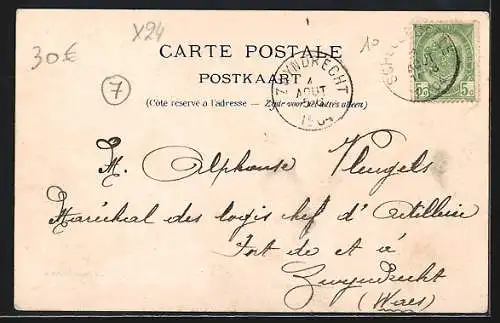 30€
X24
10
CARTE POSTALE
POSTKAART
7
ZWYNDRECHT
4
AOUT
(Côté réservé à l'adresse — Zijde voor het adres alleen)
5c 5c
M. Alphonse Vleugels
Maréchal des logis chef d'Artillerie
Fort de et à
Zwyndrecht
(Waes)